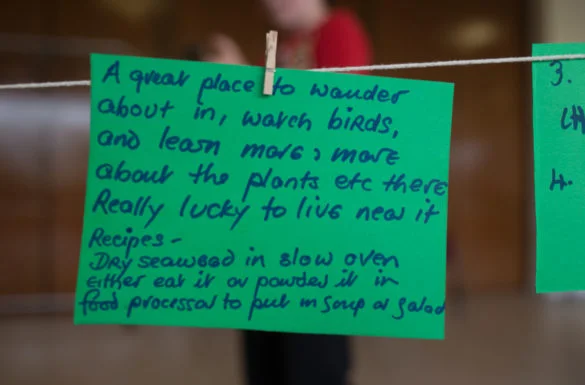 A great place to wander
about in, watch birds,
and learn more & more
about the plants etc there
Really lucky to live near it
Recipes -
Dry seaweed in slow oven
Either eat it or powder it in
food processor to put in soup or salad
3.
4.